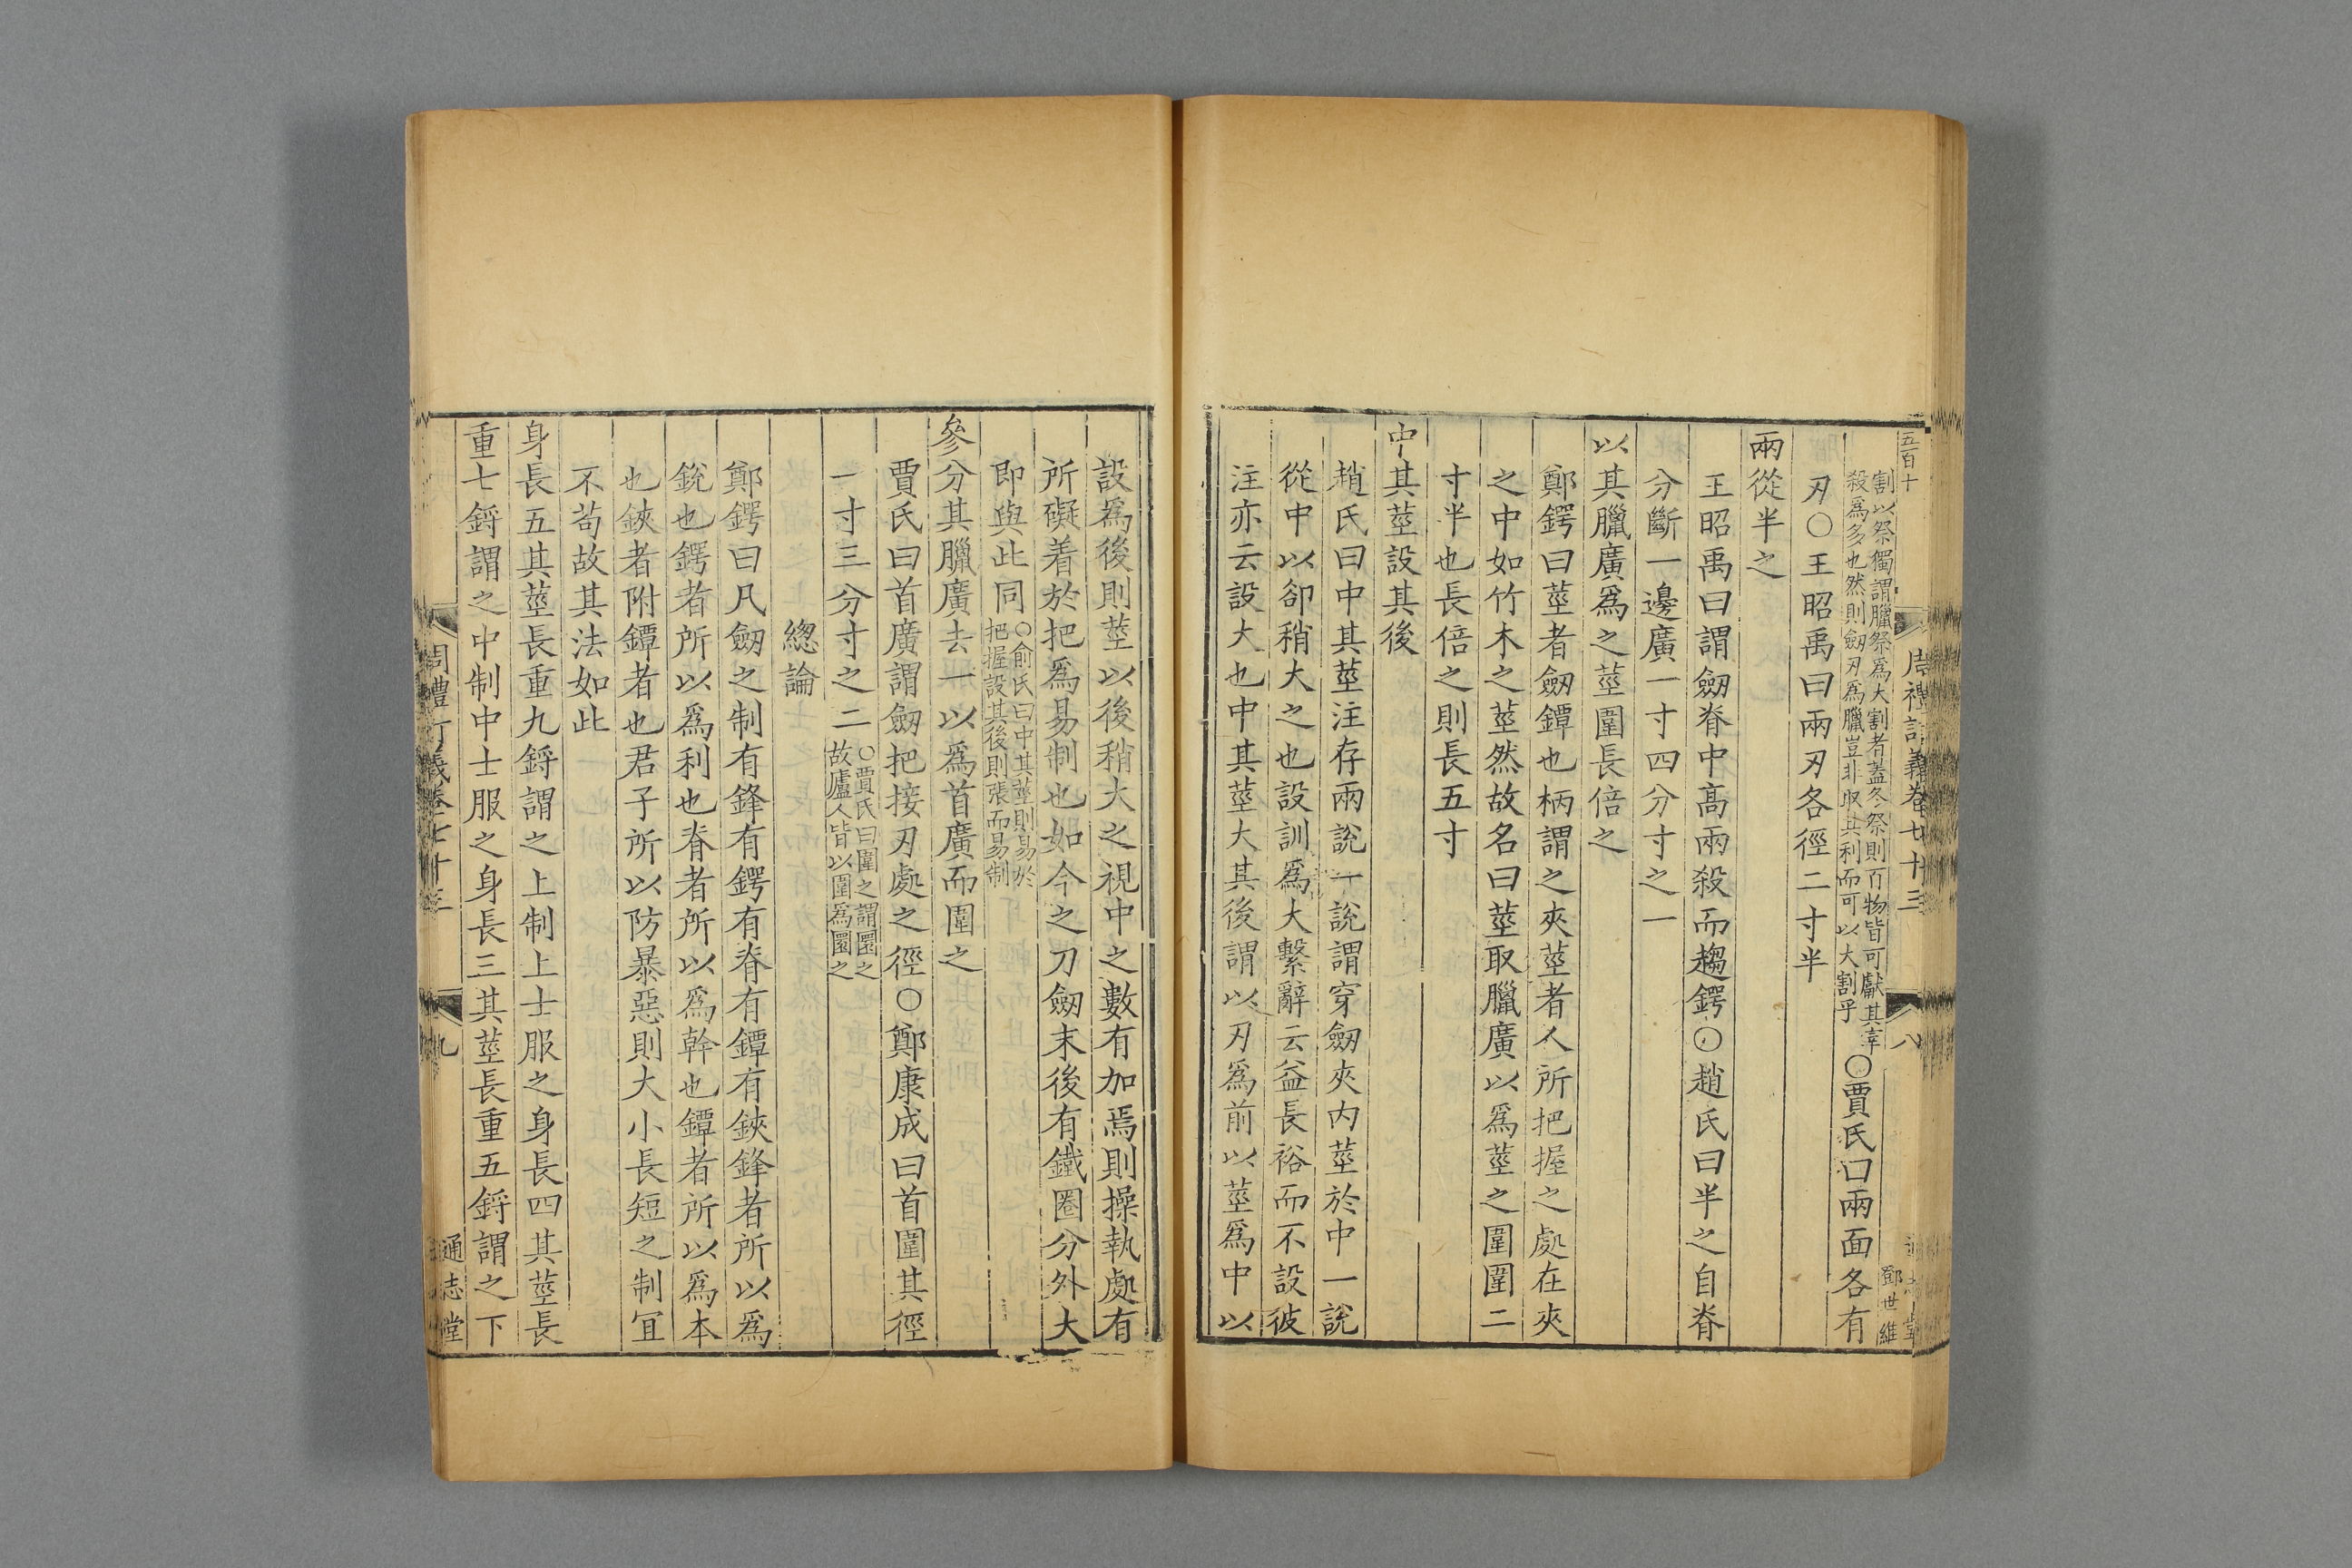 五百十
周禮訂義卷七十三
八
鄧世維
割以祭獨謂臘祭爲大割者蓋冬祭則百物皆可獻其宰
殺爲多也然則劒刃爲臘豈非取其利而可以大割乎
○賈氏曰兩面各有
刃○王昭禹曰兩刃各徑二寸半
兩從半之
王昭禹曰謂劒脊中高兩殺而趨鍔○趙氏曰半之自脊
分斷一邊廣一寸四分寸之一
以其臘廣爲之莖圍長倍之
鄭鍔曰莖者劒鐔也柄謂之夾莖者人所把握之處在夾
之中如竹木之莖然故名曰莖取臘廣以爲莖之圍圍二
寸半也長倍之則長五寸
中其莖設其後
趙氏曰中其莖注存兩說一說謂穿劒夾內莖於中一說
從中以卻稍大之也設訓爲大繫辭云益長裕而不設彼
注亦云設大也中其莖大其後謂以刃爲前以莖爲中以
設爲後則莖以後稍大之視中之數有加焉則操執處有
所礙着於把爲易制也如今之刀劒末後有鐵圈分外大
即與此同
○俞氏曰中其莖則易於
把握設其後則張而易制
參分其臘廣去一以爲首廣而圍之
賈氏曰首廣謂劒把接刃處之徑○鄭康成曰首圍其徑
一寸三分寸之二
○賈氏曰圍之謂圜之
故廬人皆以圍爲圜之
總論
鄭鍔曰凡劒之制有鋒有鍔有脊有鐔有鋏鋒者所以爲
銳也鍔者所以爲利也脊者所以爲幹也鐔者所以爲本
也鋏者附鐔者也君子所以防暴惡則大小長短之制宜
不苟故其法如此
身長五其莖長重九鋝謂之上制上士服之身長四其莖長
重七鋝謂之中制中士服之身長三其莖長重五鋝謂之下
周禮訂義卷七十三
九
通志堂